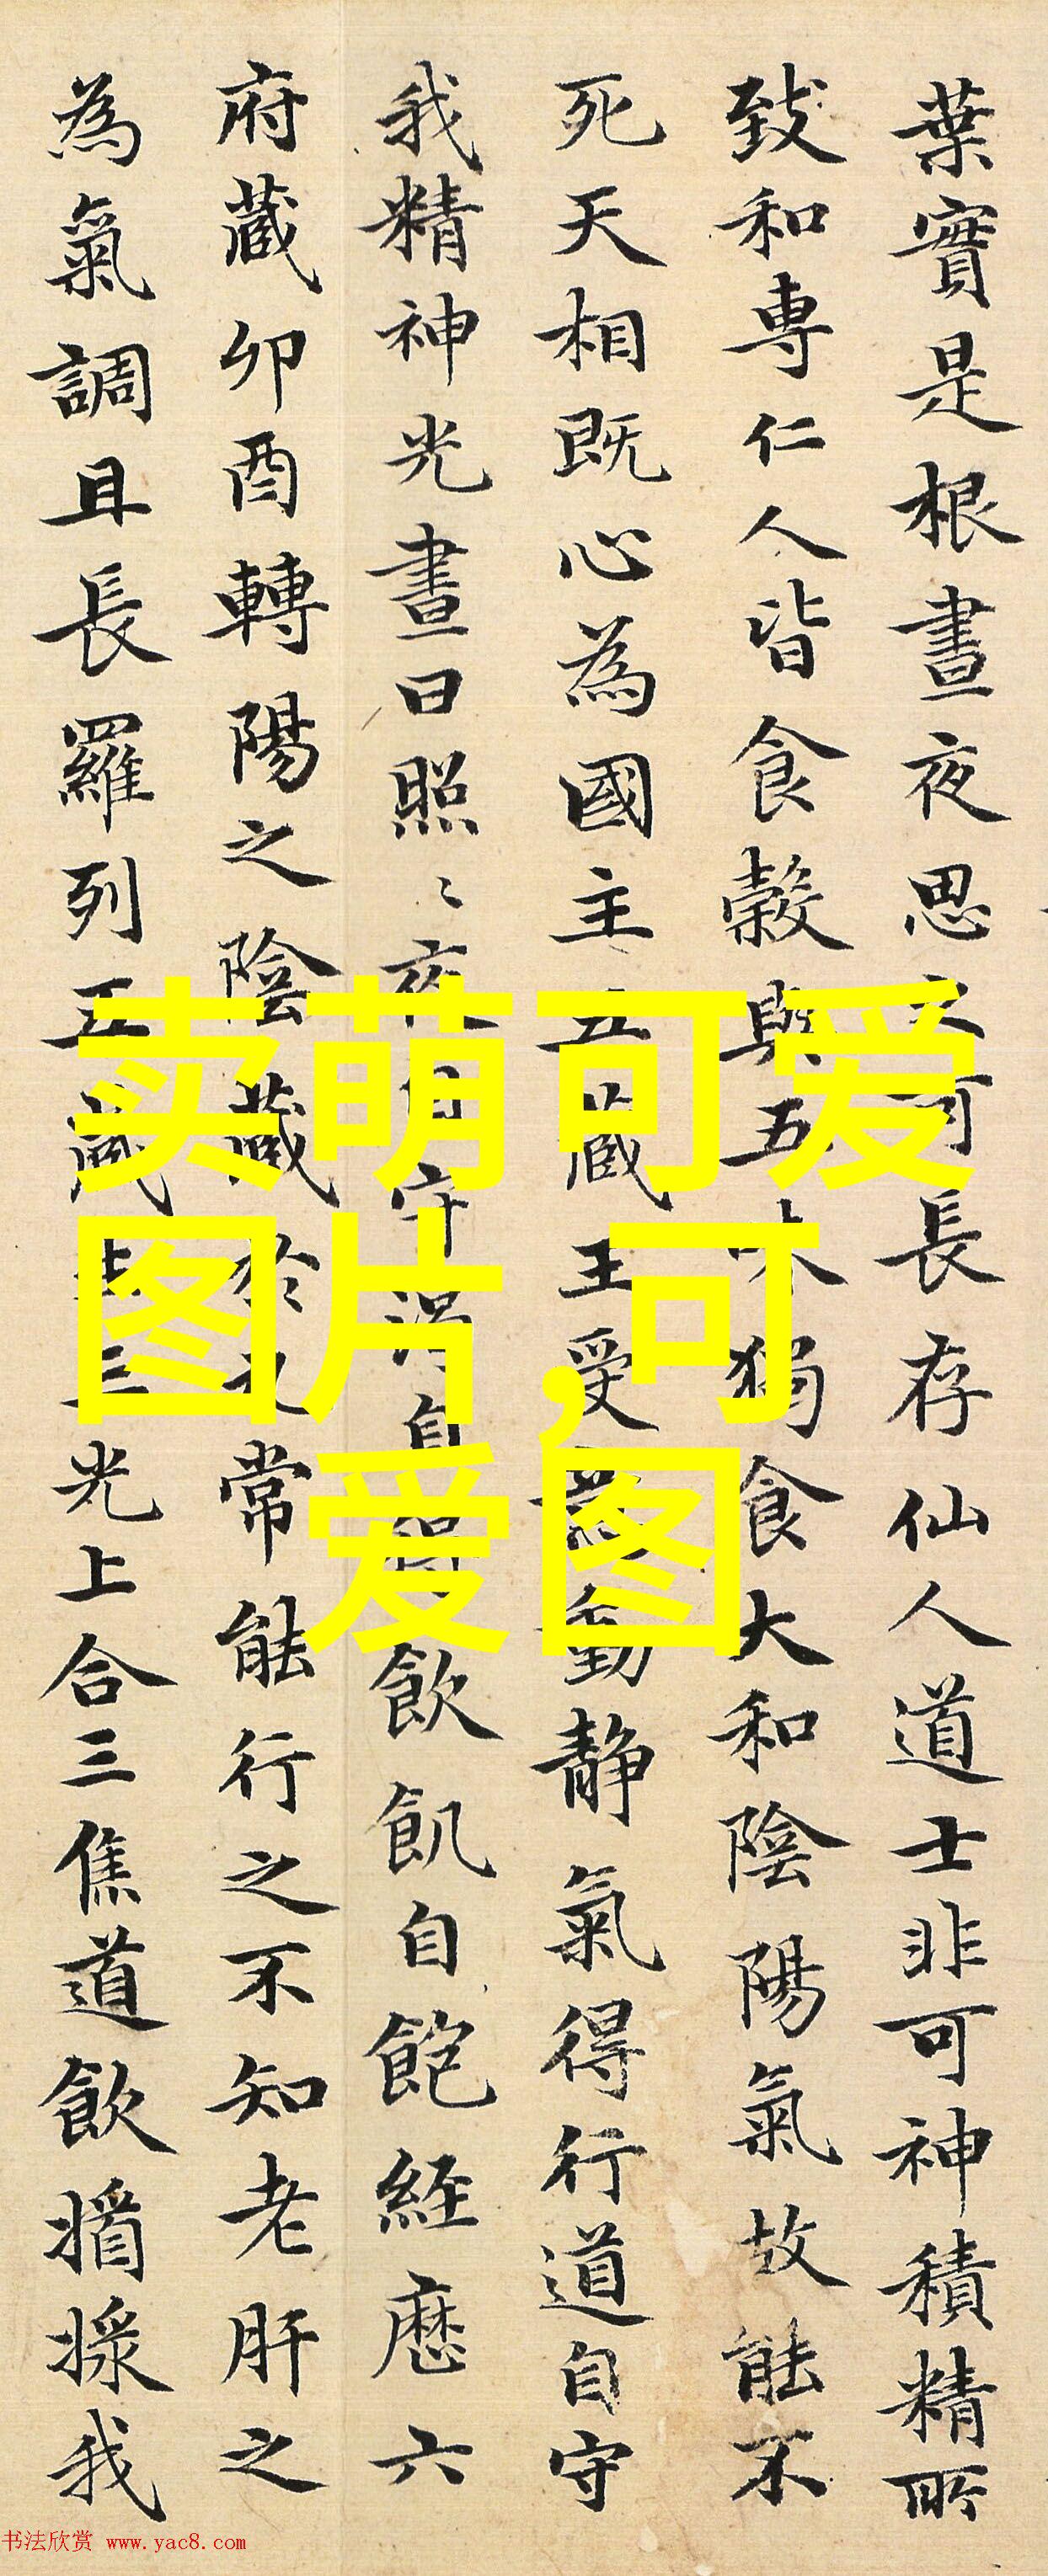 葉實是根晝夜思之可長存仙人道士非可神積精所
致和專仁人皆食穀與五味獨食大和陰陽氣故能不
死天相既心為國主五藏王受意動靜氣得行道自守
我精神光晝日照〻夜自守渴自得飲飢自飽經歷六
府藏卯酉轉陽之陰藏於九常能行之不知老肝之
為氣調且長羅列五藏生三光上合三焦道飲㨡㨾我
卖萌可爱
图片,可
爱图
书法欣赏 www.yac8.com